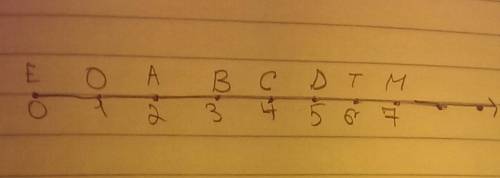 E O A B C D T M
0 1 2 3 4 5 6 7